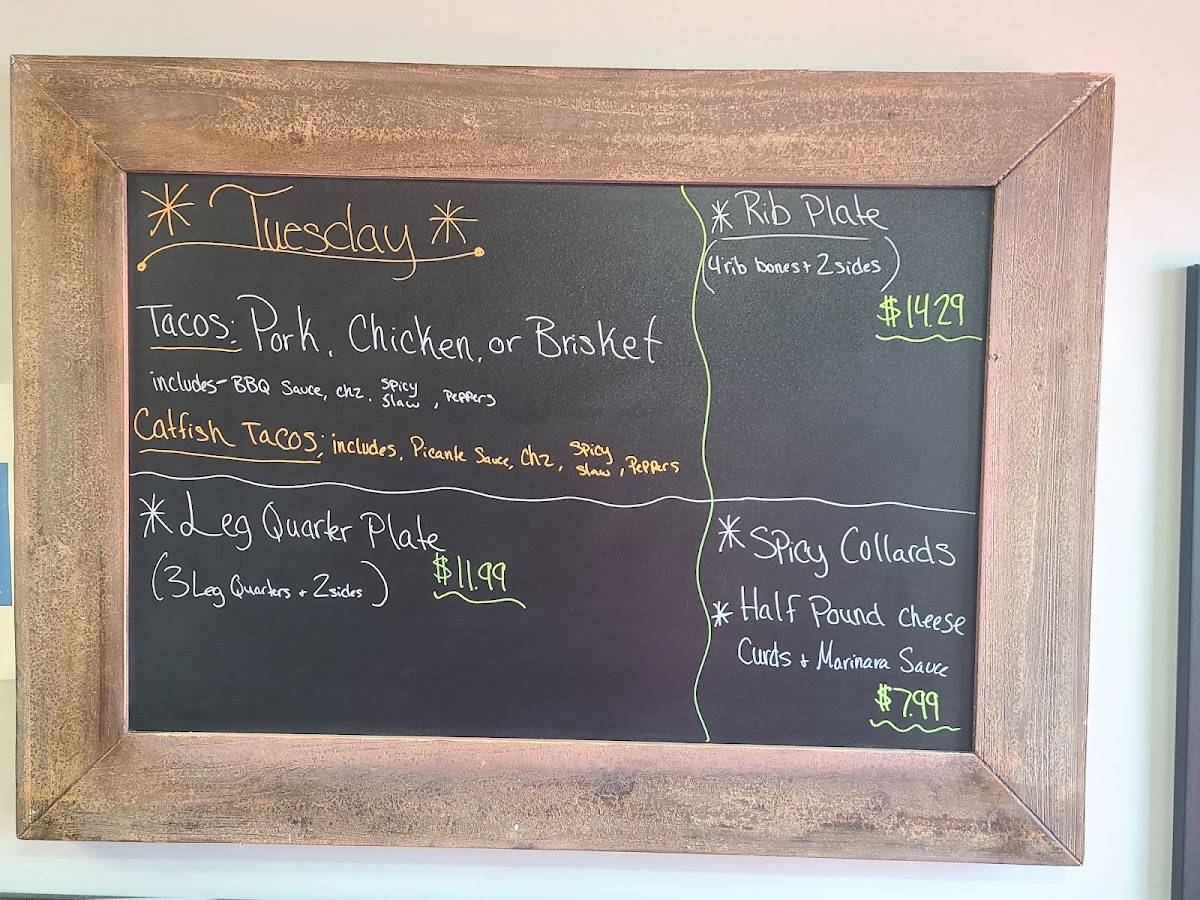 * Tuesday *
Tacos: Pork, Chicken, or Brisket
includes- BBQ Sauce, chz, Spicy Slaw, Peppers
Catfish Tacos; includes, Picante Sauce, Chz, Spicy Slaw, Peppers
* Leg Quarter Plate
(3 Leg Quarters + 2 sides)
$11.99
* Rib Plate
(4 rib bones + 2 sides)
$14.29
* Spicy Collards
* Half Pound cheese
Curds + Marinara Sauce
$7.99